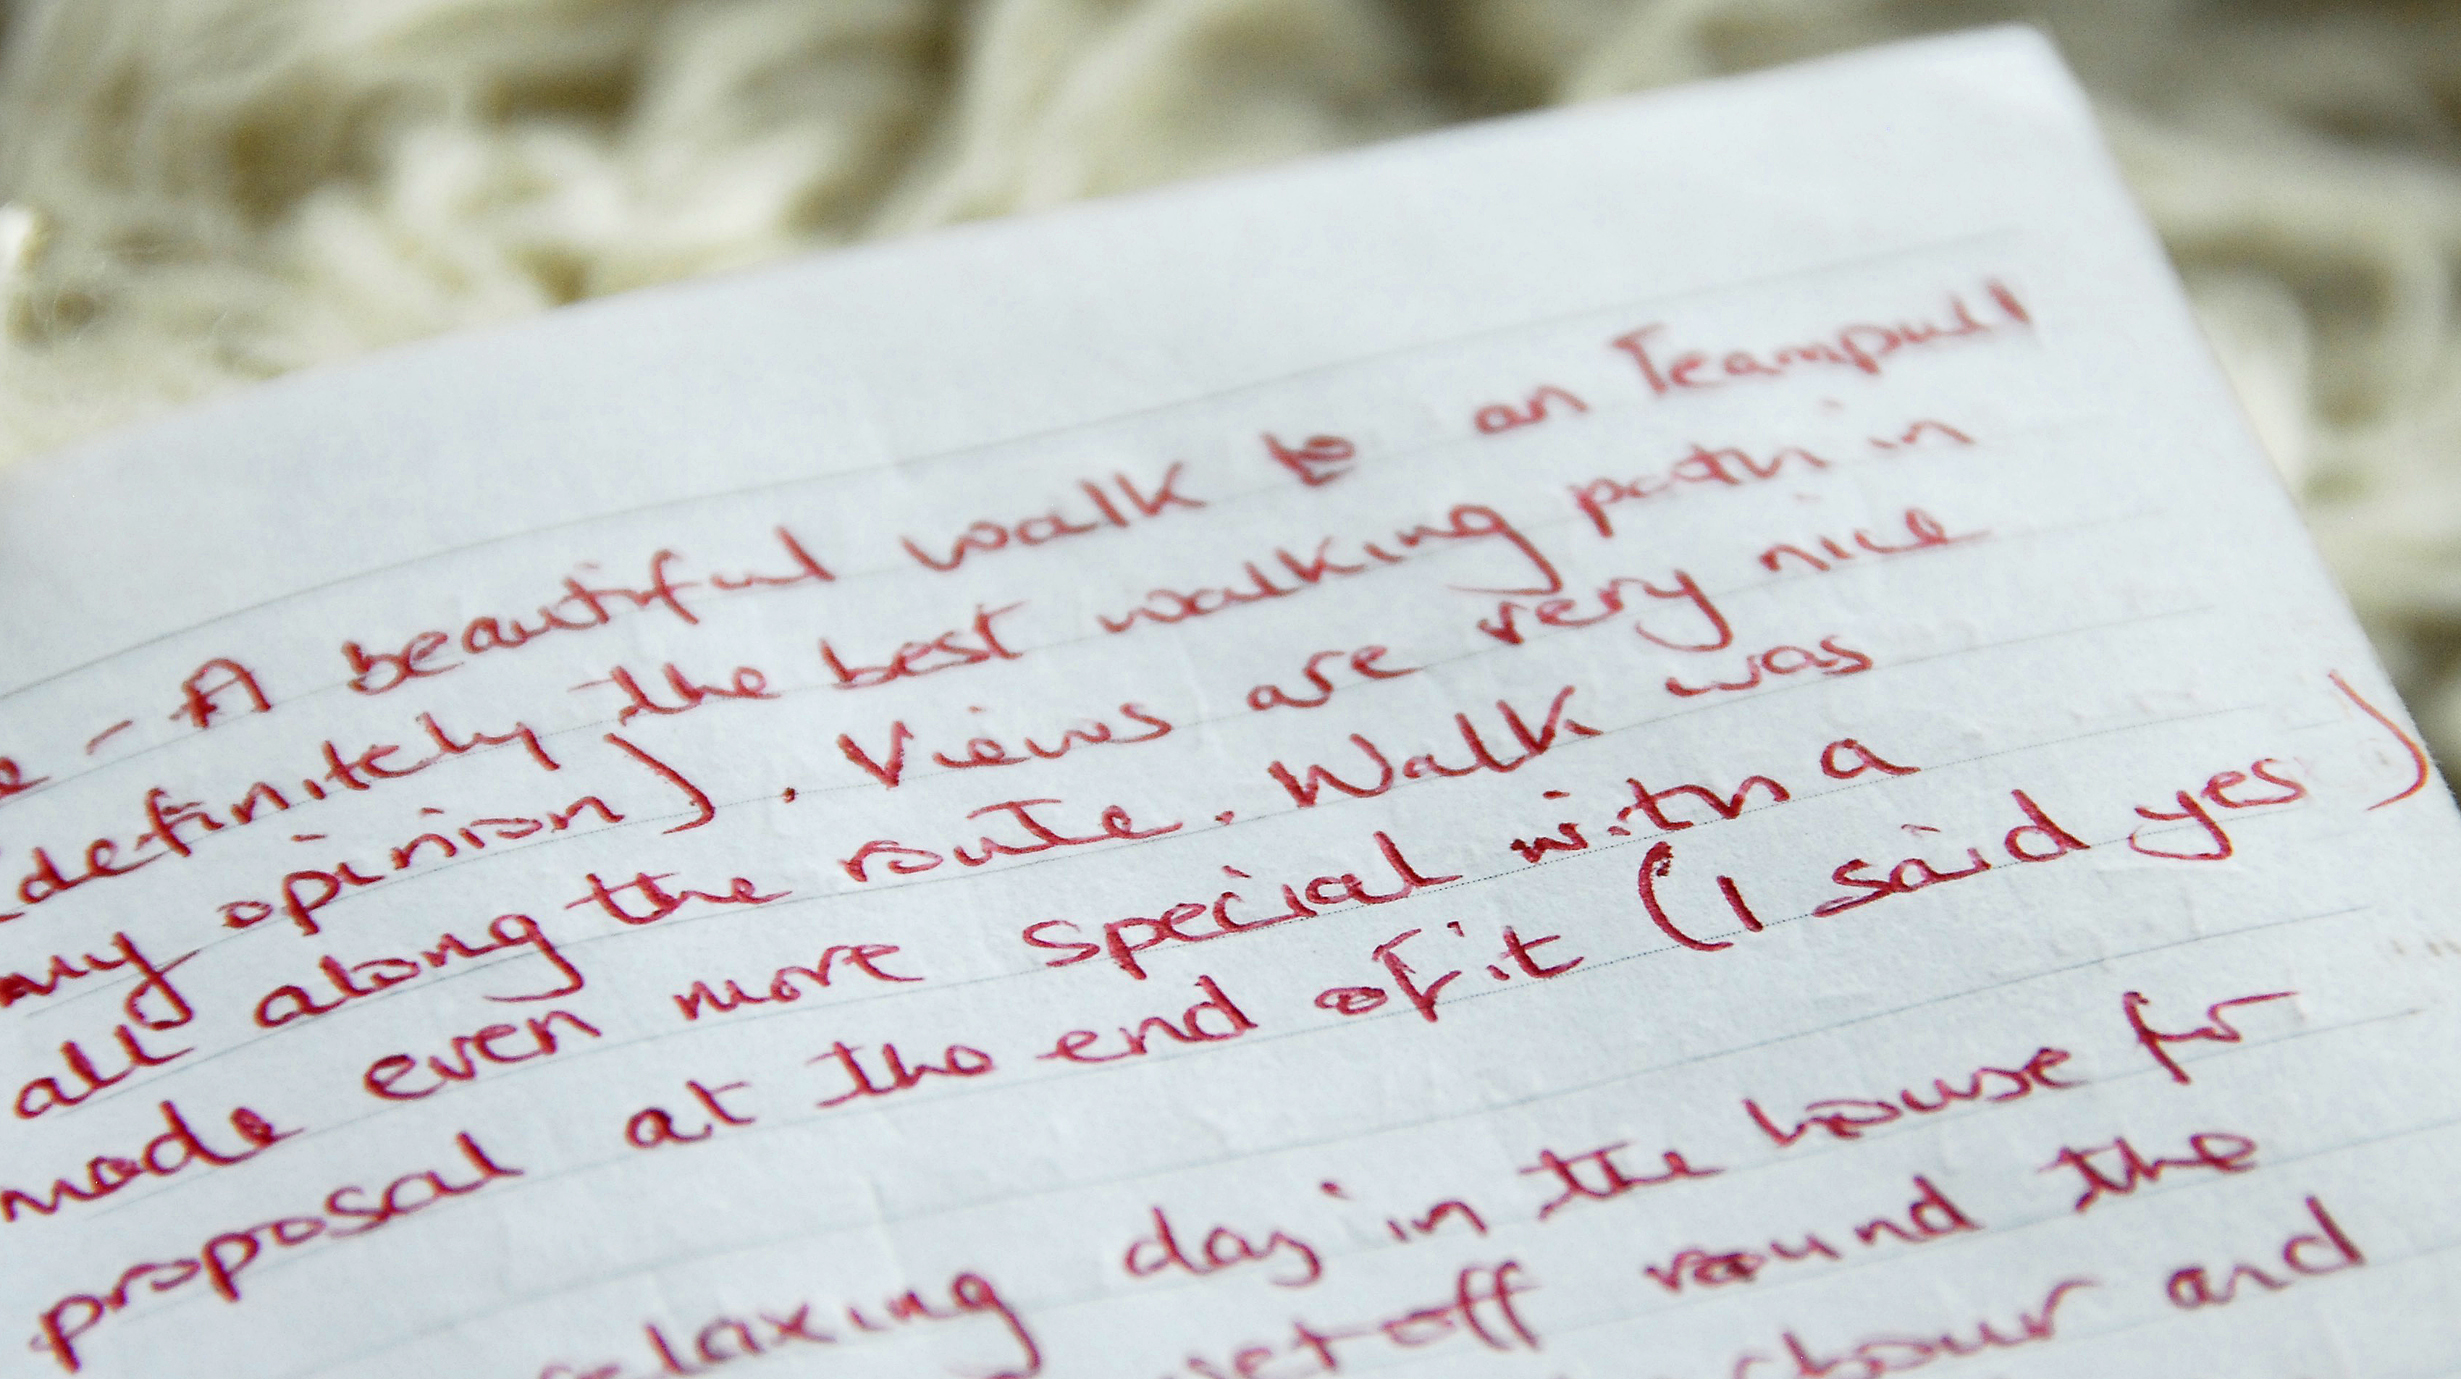 - A beautiful walk to an Teampull
(definitely the best walking path in
my opinion). Views are very nice
all along the route. Walk was
made even more special with a
proposal at the end of it (I said yes)
relaxing day in the house for
set off round the
hour and